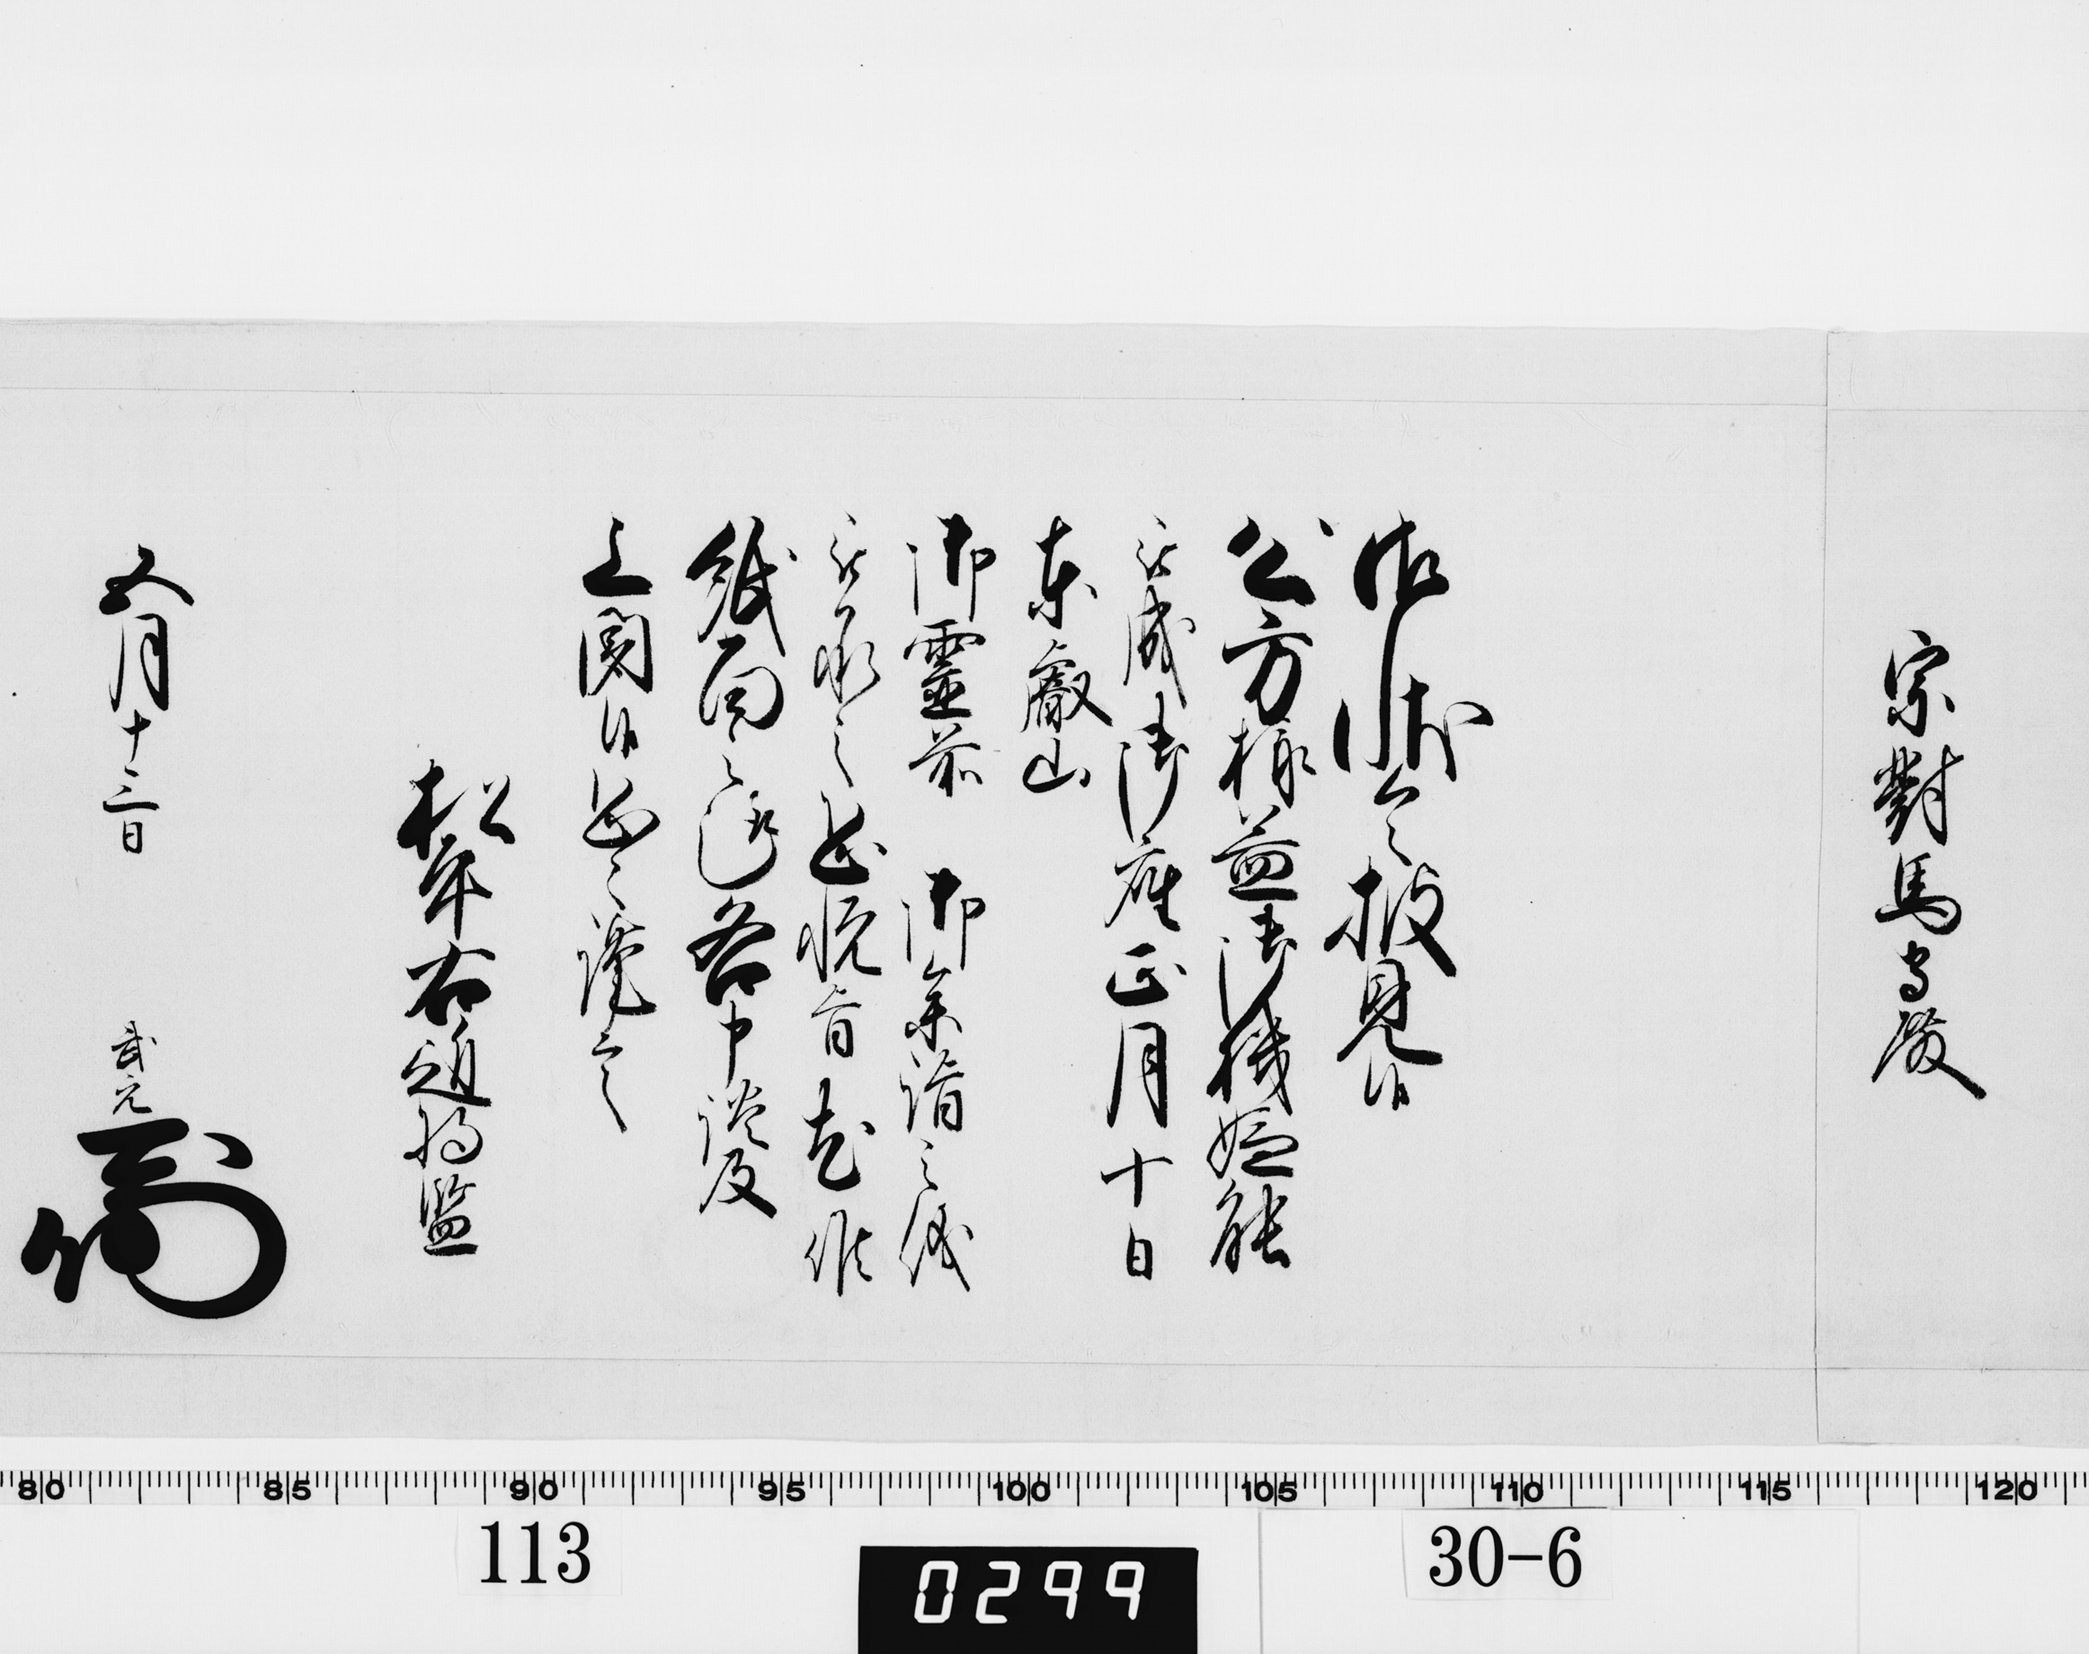 宗對馬守殿
御状令披見候
公方様益御機嫌能
被成御座正月十日
東叡山
御靈前 御参詣之儀
被承之恐悦旨尤候
紙面之通各申談及
上聞候恐々謹言
松平右近将監
五月十三日 武元
80 85 90 95 100 105 110 115 120
113 0299 30-6